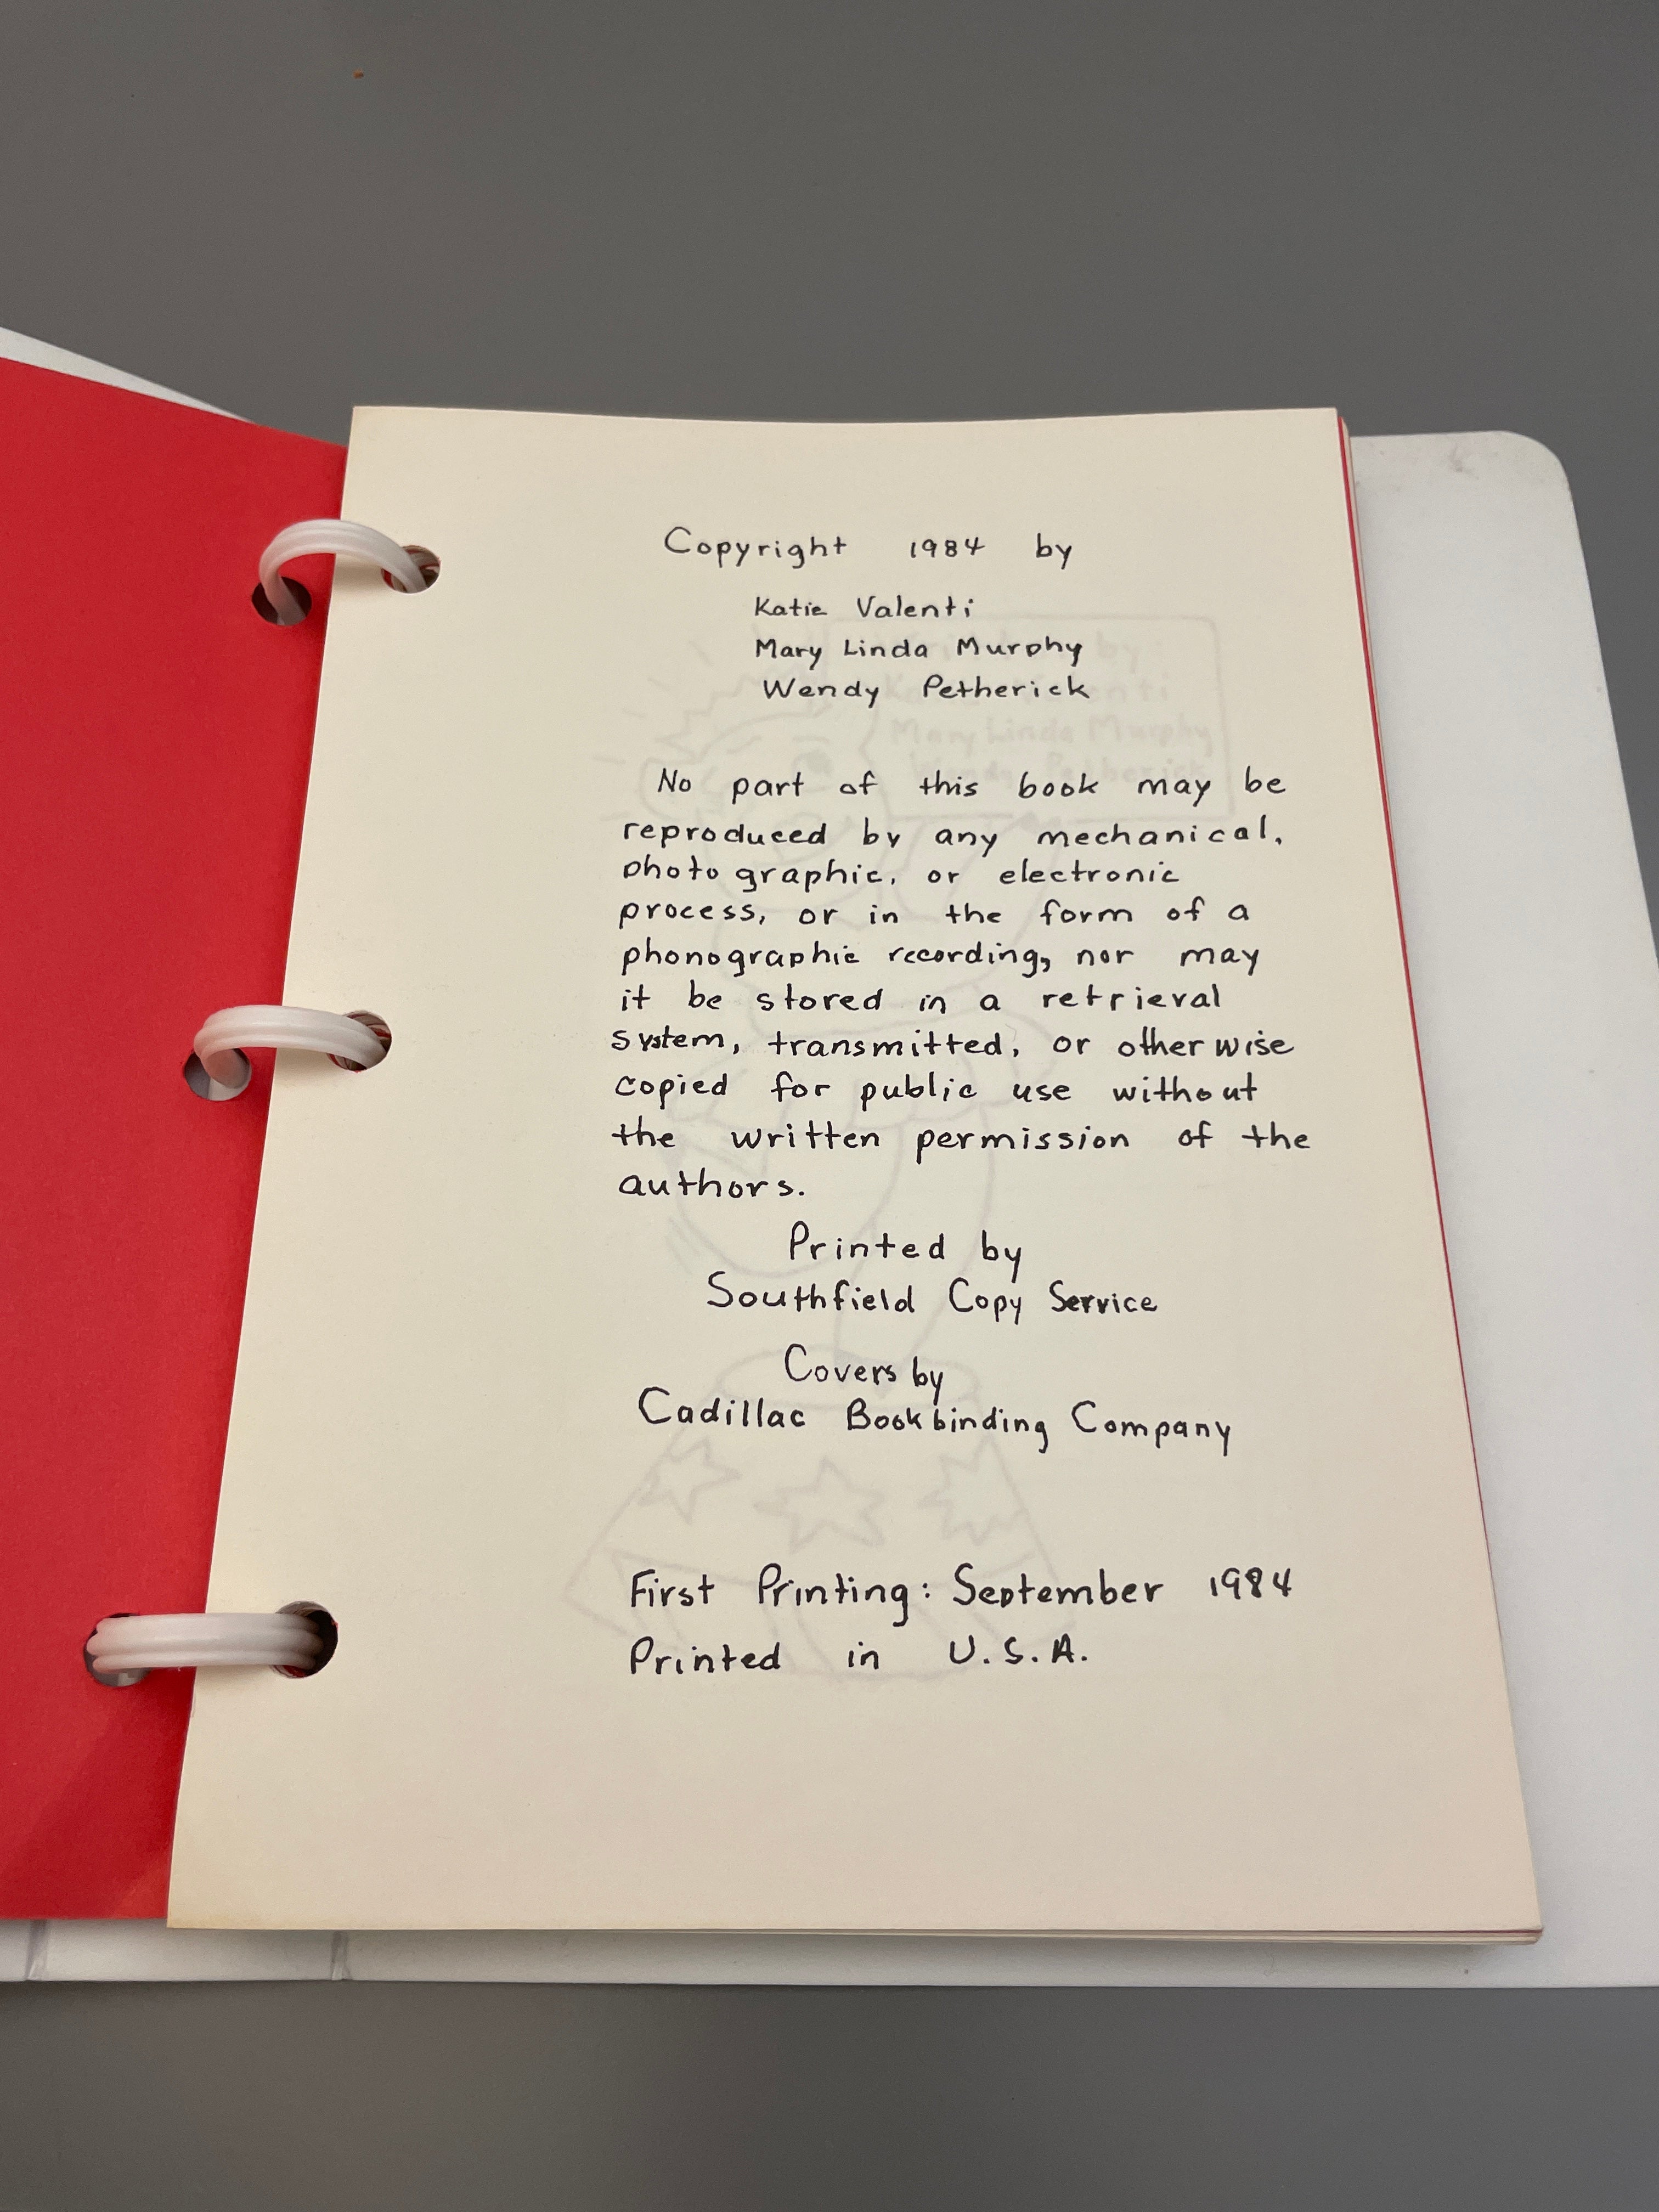 Copyright 1984 by
Katie Valenti
Mary Linda Murphy
Wendy Petherick
No part of this book may be
reproduced by any mechanical,
photographic, or electronic
process, or in the form of a
phonographic recording, nor may
it be stored in a retrieval
system, transmitted, or otherwise
copied for public use without
the written permission of the
authors.
Printed by
Southfield Copy Service
Covers by
Cadillac Bookbinding Company
First Printing: September 1984
Printed in U.S.A.